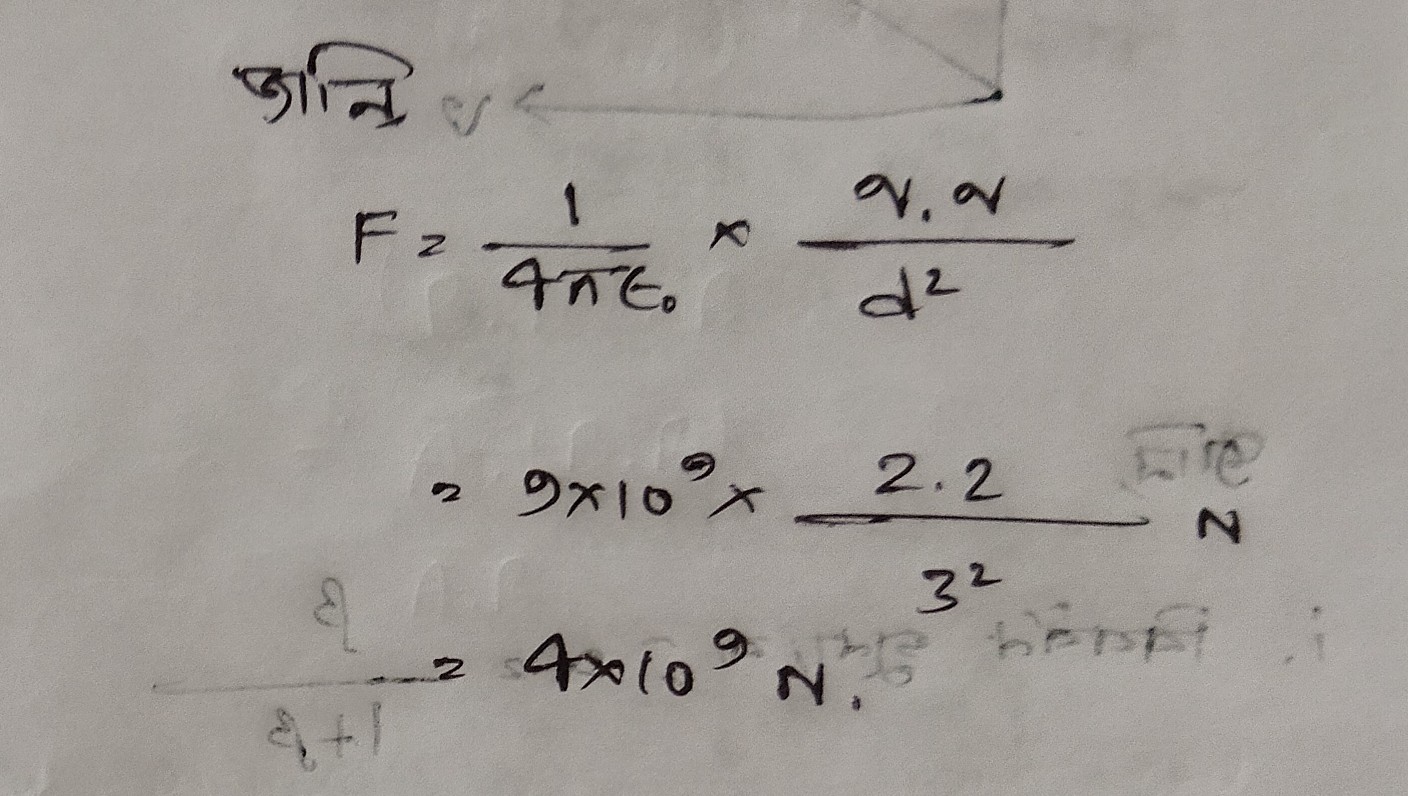 জানি
F = 1/4πε₀ × q.q/d²
= 9×10⁹ × 2.2/3² N
= 4×10⁹ N.